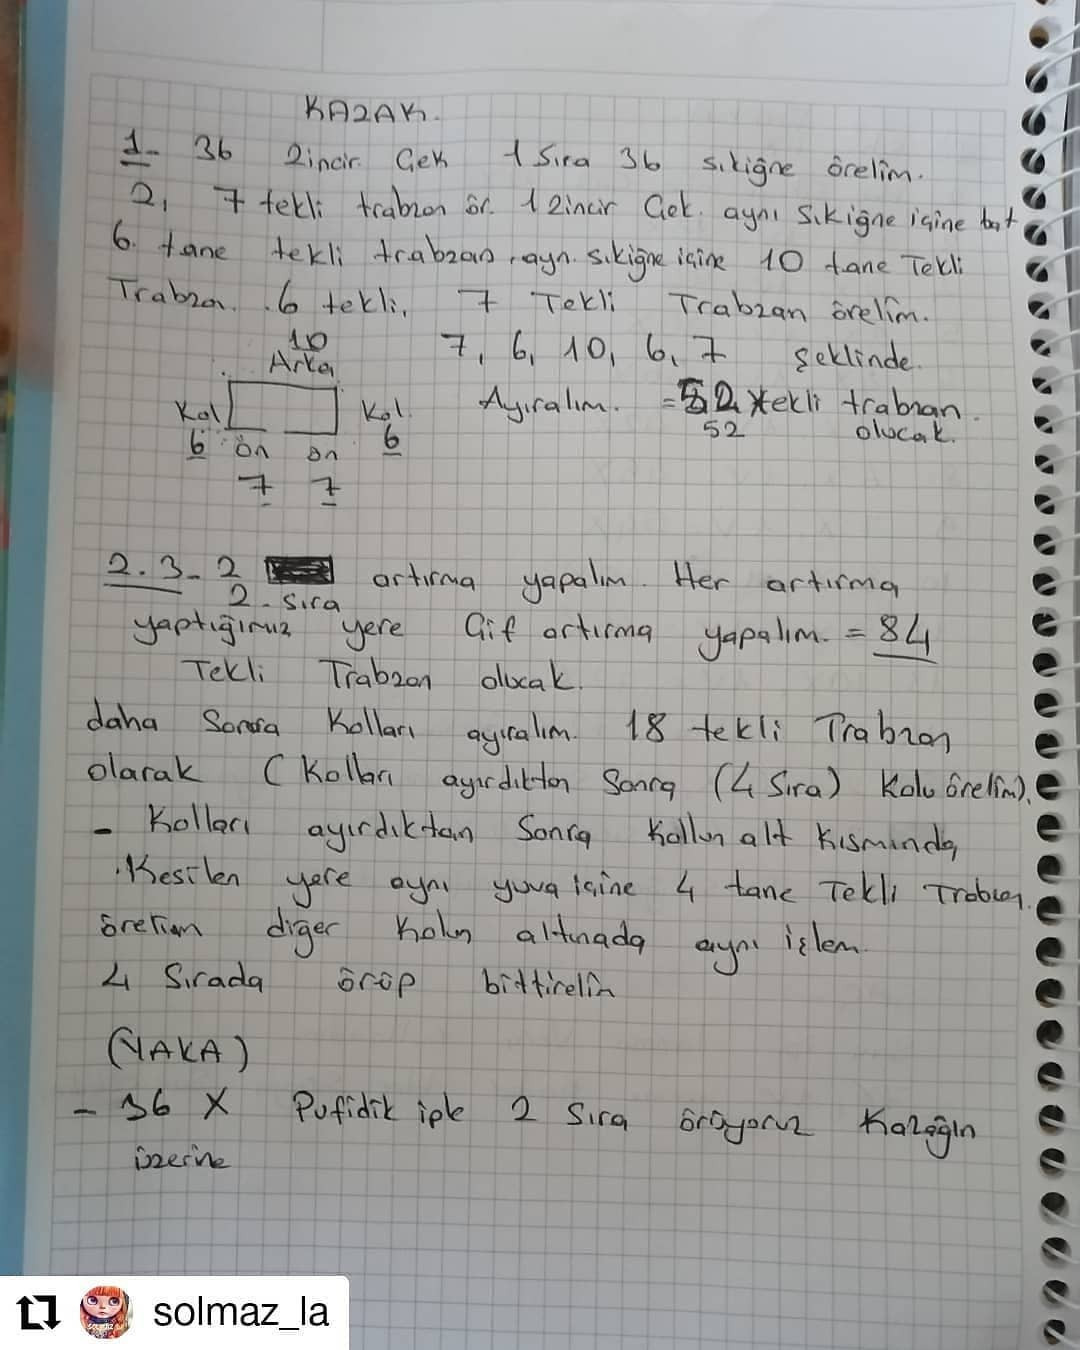 KAZAK.
1- 36 Zincir Çek 1 Sıra 36 sıkiğne örelim.
2, 7 tekli trabzan ör. 1 Zincir Çek. aynı sıkiğne içine bat
6. tane tekli trabzan, ayn. sıkiğne içine 10 tane Tekli
Trabzan. 6 tekli, 7 Tekli Trabzan örelim.
10 7, 6, 10, 6, 7 şeklinde.
Arka
Kol Kol. Ayıralım. = 52 tekli trabzan.
6 ön ön 6 52 olucak.
7 7
2.3-2 artırma yapalım. Her artırma
2. sıra
yaptığımız yere Çif artırma yapalım. = 84
Tekli Trabzan olucak.
daha Sonra Kolları ayıralım. 18 tekli Trabzan
olarak (Kolları ayırdıktan Sonra (4 Sıra) Kolu örelim).
- Kolları ayırdıktan Sonra Kollun alt Kısmında
.Kesilen yere aynı yuva içine 4 tane Tekli Trabzan.
örelim diğer Kolun altınada aynı işlem.
4 Sırada örüp bittirelin
(YAKA)
- 36 X Pufidik iple 2 Sıra örüyoruz Kazağın
üzerine
solmaz_la